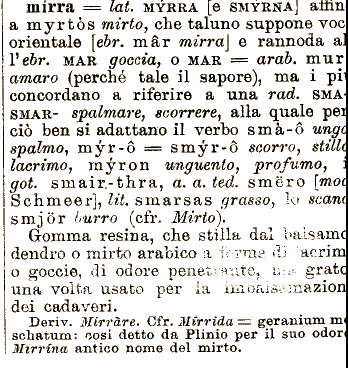 mirra = lat. MÝRRA [e SMÝRNA] affin
a myrtòs mirto, che taluno suppone voc
orientale [ebr. mâr mirra] e rannoda al
l'ebr. MAR goccia, o MAR = arab. mur
amaro (perché tale il sapore), ma i pi
concordano a riferire a una rad. SMA-
SMAR- spalmare, scorrere, alla quale per
ciò ben si adattano il verbo smà-ô ungo
spalmo, mýr-ô = smýr-ô scorro, stillo
lacrimo, mýron unguento, profumo, i
got. smair-thra, a. a. ted. smëro [mod
Schmeer], lit. smarsas grasso, lo scand
smjör burro (cfr. Mirto).
Gomma resina, che stilla dal balsamo
dendro o mirto arabico a forma di lacrim
o goccie, di odore penetrante, ma grato
una volta usato per la imbalsamazion
dei cadaveri.
Deriv. Mirràre. Cfr. Mirrida = geranium m
schatum: così detto da Plinio per il suo odore
Mirrina antico nome del mirto.